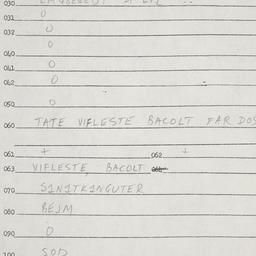 030
031 0
032 0
040 0
041 0
042 0
050 0
060 TATE VIFLESTE BACOLT FAR DOS
061 + 062 +
063 VIFLESTE, BACOLT 064
070 S1N1TK1NGUTER
080 BEJM
090 0
100 SOD